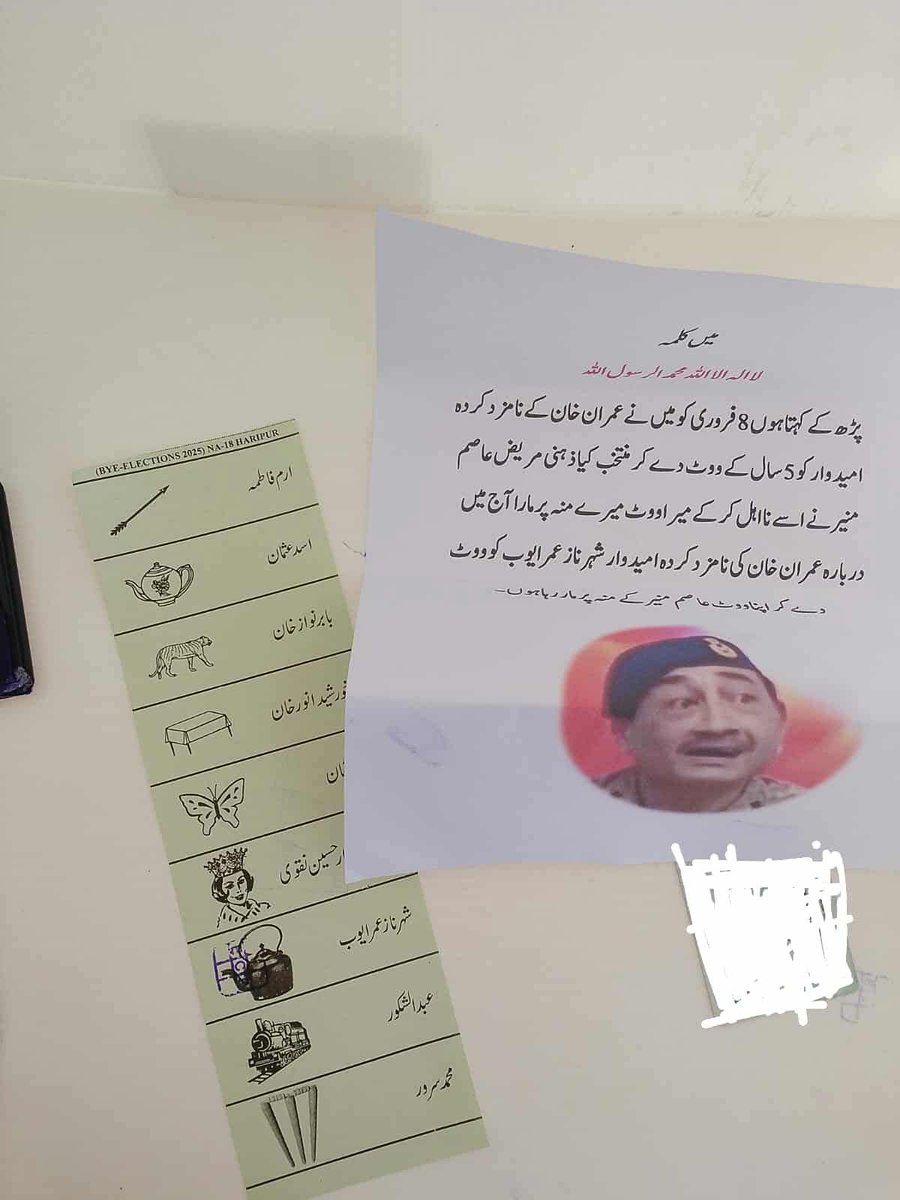 (BYE-ELECTIONS 2025) NA-18 HARIPUR
ارم فاطمہ
اسد عثمان
بابر نواز خان
خورشید انور خان
خان
حسین نقوی
شہر ناز عمر ایوب
عبد الشکور
محمد سرور
میں کلمہ
لا الہ الا اللہ محمد الرسول اللہ
پڑھ کے کہتا ہوں 8 فروری کو میں نے عمران خان کے نامزد کردہ
امیدوار کو 5 سال کے ووٹ دے کر منتخب کیا ذہنی مریض عاصم
منیر نے اسے نااہل کر کے میرا ووٹ میرے منہ پر مارا آج میں
دربارہ عمران خان کی نامزد کردہ امیدوار شہر ناز عمر ایوب کو ووٹ
دے کر اپنا ووٹ عاصم منیر کے منہ پر مار رہا ہوں۔